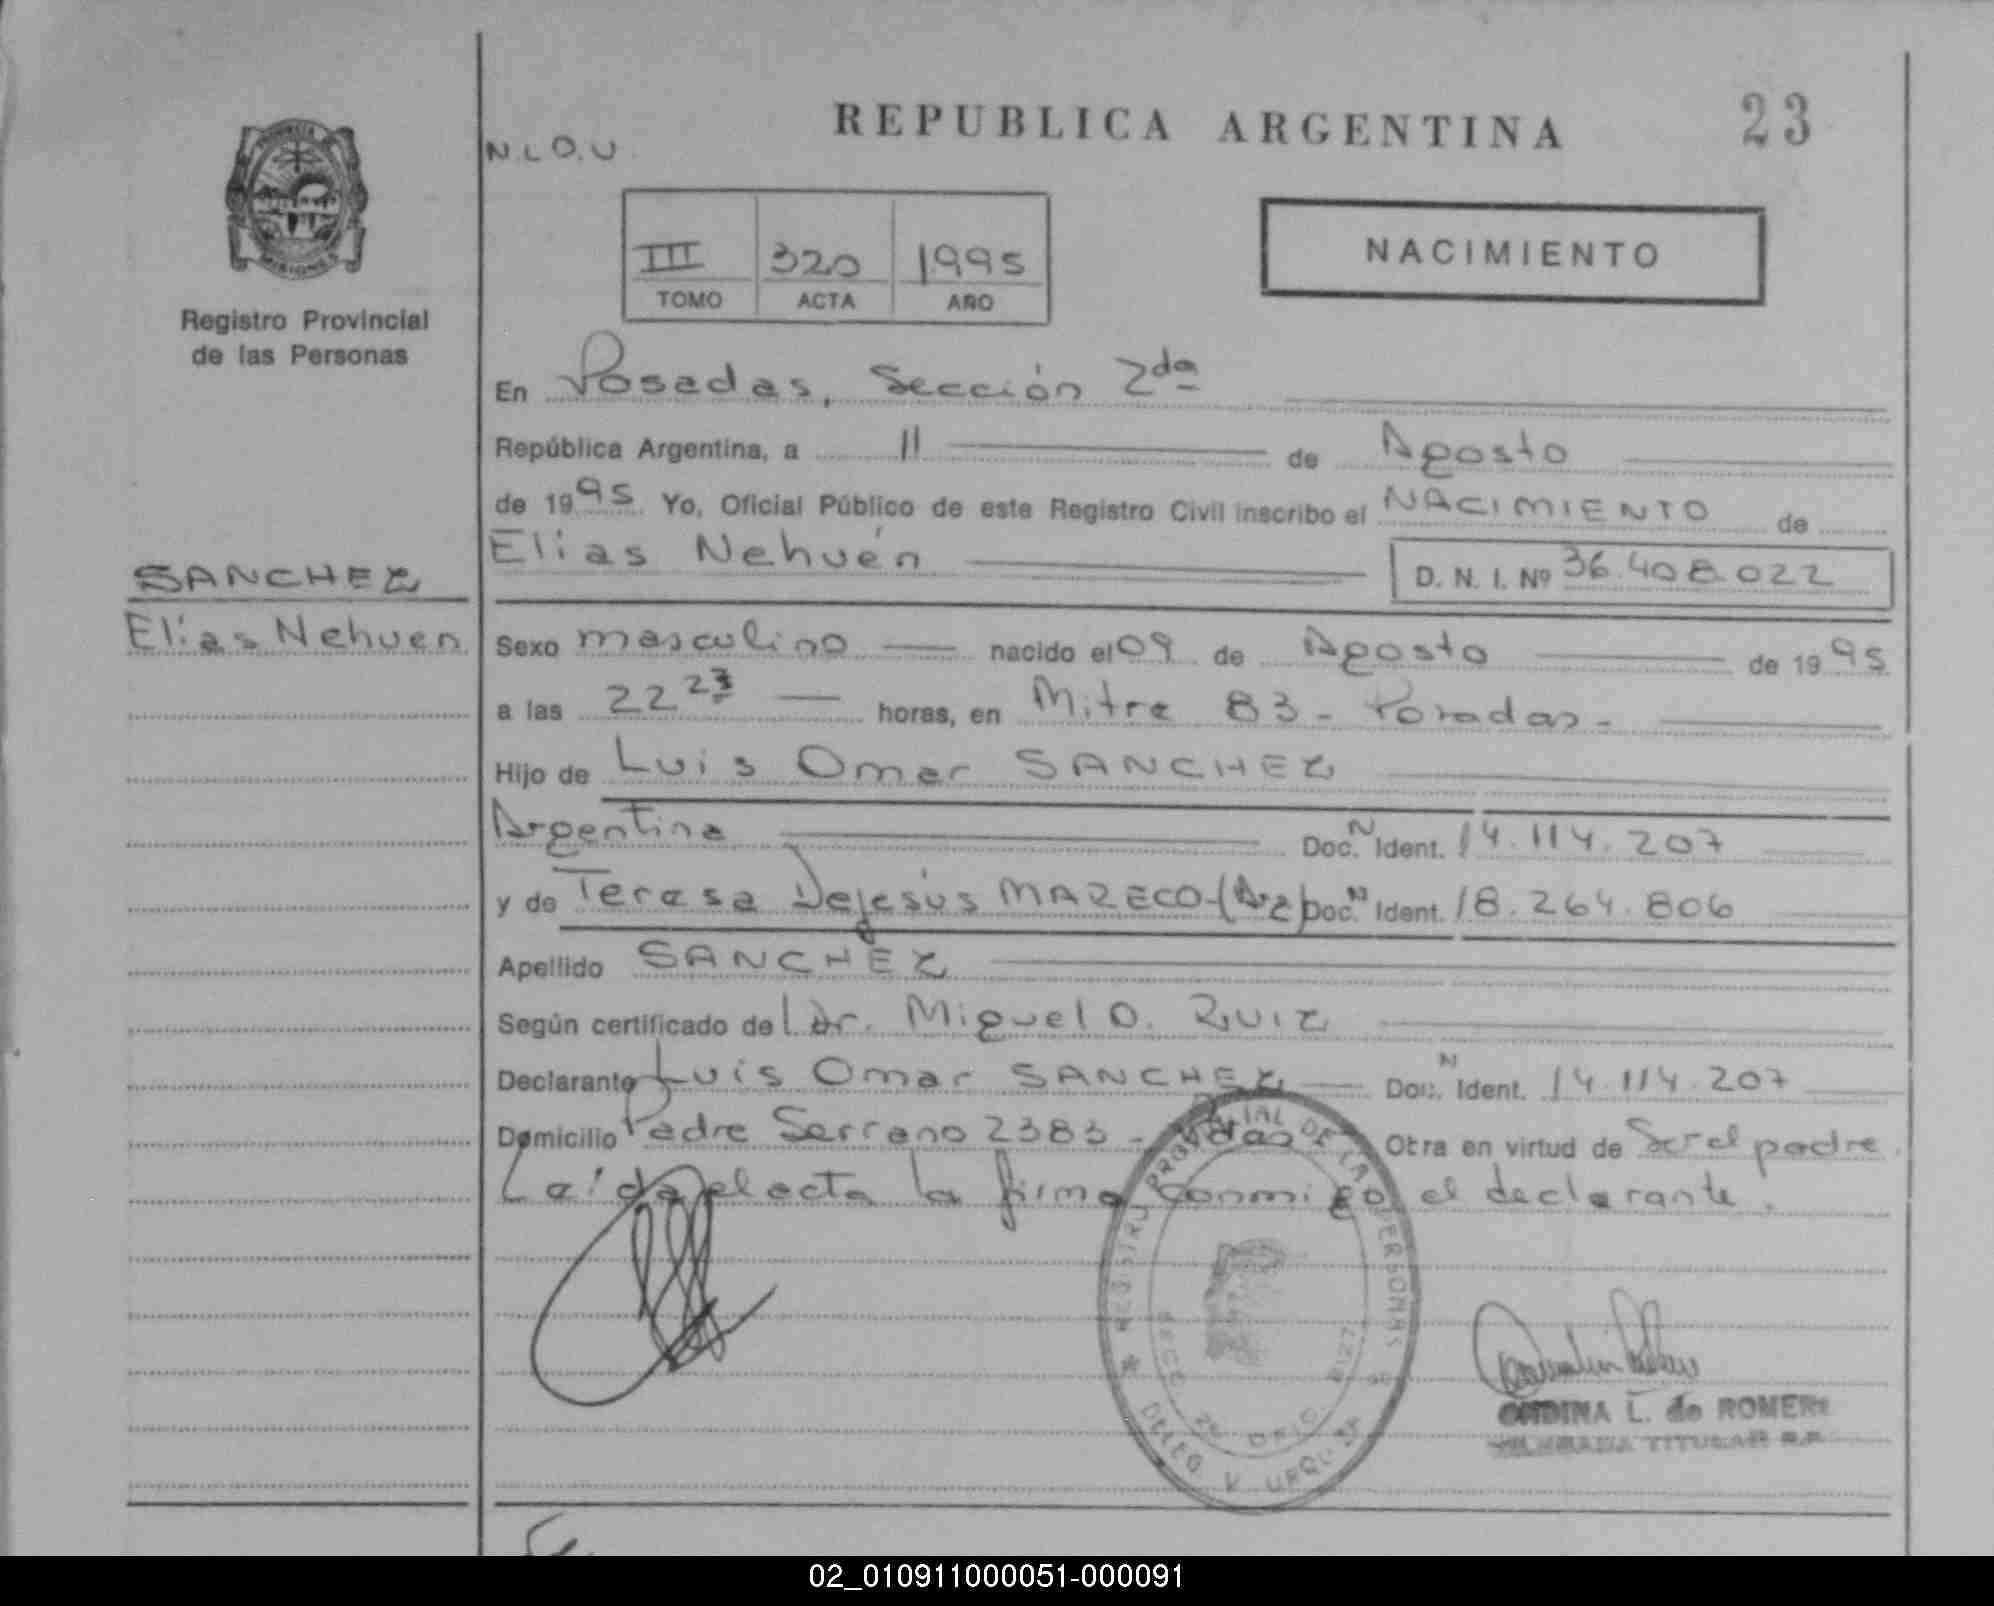 REPUBLICA ARGENTINA
23
N.L.O.U
NACIMIENTO
III 320 1995
TOMO ACTA AÑO
MISIONES
Registro Provincial
de las Personas
SANCHEZ
Elias Nehuen
En Posadas, Sección 2da
República Argentina, a 11 de Agosto
de 1995 Yo, Oficial Público de este Registro Civil inscribo el NACIMIENTO de
Elias Nehuén
D. N. I. Nº 36.408.022
Sexo masculino nacido el 09 de Agosto de 1995
a las 22 23 horas, en Mitre 83 - Posadas -
Hijo de Luis Omar SANCHEZ
Argentina Doc. N Ident. 14.114.207
y de Teresa Dejesús MARECO - (Arg) Doc. N Ident. 18.264.806
Apellido SANCHEZ
Según certificado del Dr. Miguel O. Ruiz
Declarante Luis Omar SANCHEZ Doc. N Ident. 14.114.207
Domicilio Padre Serrano 2383 - Pdas Otra en virtud de Ser el padre.
Leída el acta la firma conmigo el declarante.
REGISTRO PROVINCIAL DE LAS PERSONAS
SECC. 2a OFIC.
DELEG. V. URQUIZA
ONDINA L. de ROMERO
TITULAR R.P.
02_010911000051-000091